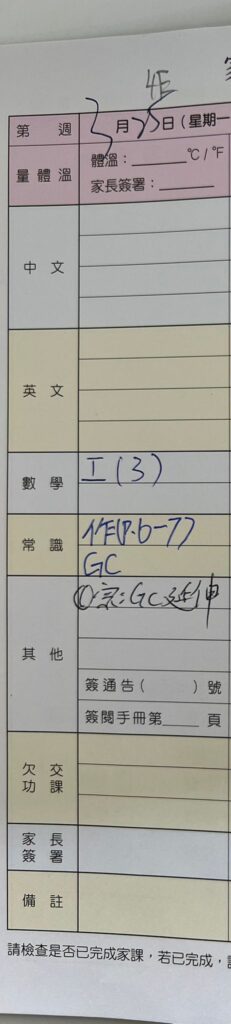 4E
第 週
3月25日(星期一
量體溫
體溫:______℃/℉
家長簽署:______
中文
英文
數學
工(3)
常識
作(P.6-7)
GC
其他
①家:GC延伸
簽通告( )號
簽閱手冊第____頁
欠交
功課
家長
簽署
備註
請檢查是否已完成家課,若已完成,